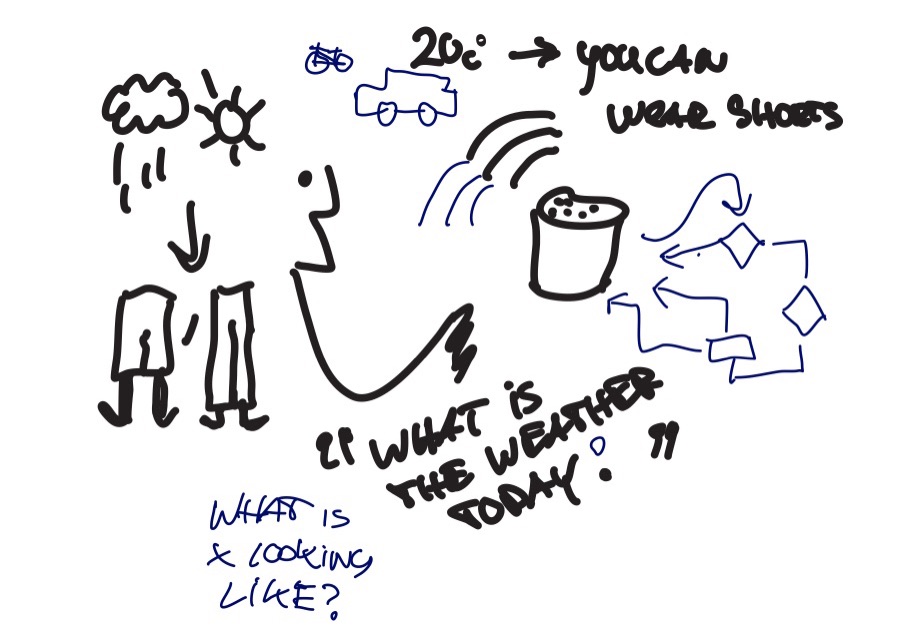 20c° → YOU CAN
WEAR SHOETS
"WHAT IS
THE WEATHER
TODAY: "
WHAT IS
X LOOKING
LIKE?